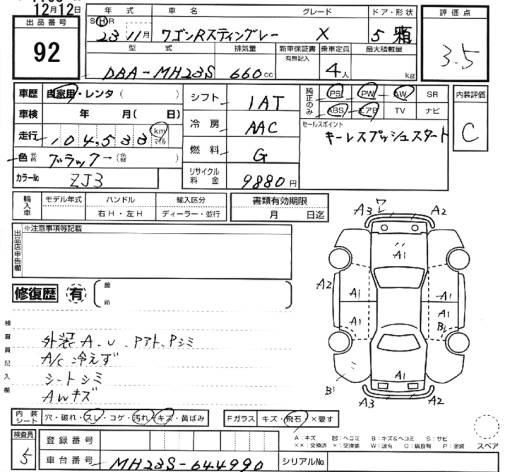 12月12日
出品番号
92
年式 車名 グレード ドア・形状
S H R
23年11月 ワゴンRスティングレー X 5 箱
型式 排気量 新車保証書 乗車定員 最大積載量
有無記入
DBA-MH23S 660cc 4人 kg
評価点
3.5
車歴 自家用・レンタ( )
車検 年 月( 日)
走行 104,533 km マイル
色 ブラック→( )
カラーNo ZJ3
シフト 1AT
冷房 AAC
燃料 G
リサイクル料金 9880円
純正のみ PS PW AW SR
ABS エアB TV ナビ
セールスポイント
キーレスプッシュスタート
内装評価
C
輸入車 モデル年式 ハンドル 輸入区分
年 右H・左H ディーラー・並行
書類有効期限
月 日迄
出品店申告欄
※注意事項等記載
修復歴 有 箇所
検査員記入欄
外装A、U、Pアト、Pシミ
A/C冷えず
シートシミ
AWキズ
A3 ワ A2
A1
A2 A1 A1
A1 A1 B1
A1
B1
A3 A2
内装シート 穴・破れ・スレ・コゲ・汚れ・キズ・黄ばみ
Fガラス キズ・飛石・×要す
A:キズ B:キズ&ヘコミ S:サビ
スペア
検査員
5
登録番号
車台番号 MH23S-644990
シリアルNo